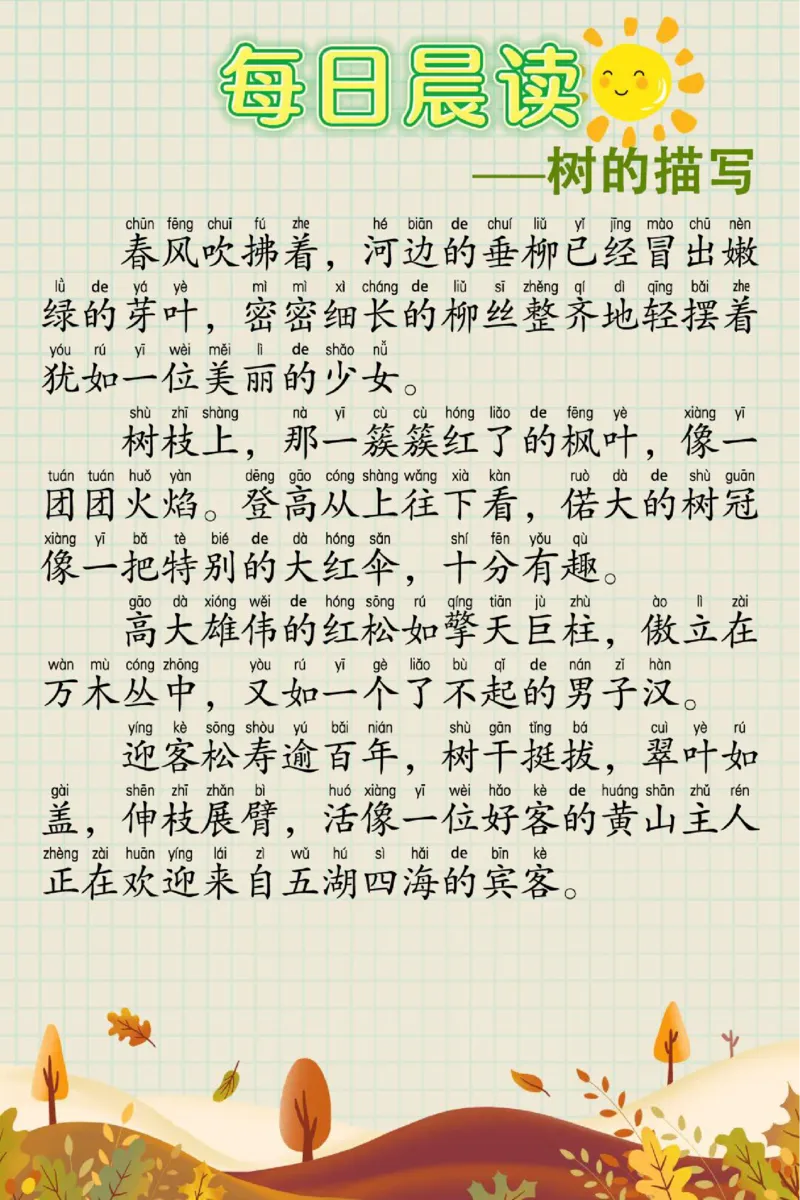 每日晨读
——树的描写
chūn fēng chuī fú zhe hé biān de chuí liǔ yǐ jīng mào chū nèn
春风吹拂着，河边的垂柳已经冒出嫩
lǜ de yá yè mì mì xì cháng de liǔ sī zhěng qí dì qīng bǎi zhe
绿的芽叶，密密细长的柳丝整齐地轻摆着
yóu rú yī wèi měi lì de shǎo nǚ
犹如一位美丽的少女。
shù zhī shàng nà yī cù cù hóng liǎo de fēng yè xiàng yī
树枝上，那一簇簇红了的枫叶，像一
tuán tuán huǒ yàn dēng gāo cóng shàng wǎng xià kàn ruò dà de shù guān
团团火焰。登高从上往下看，偌大的树冠
xiàng yī bǎ tè bié de dà hóng sǎn shí fēn yǒu qù
像一把特别的大红伞，十分有趣。
gāo dà xióng wěi de hóng sōng rú qíng tiān jù zhù ào lì zài
高大雄伟的红松如擎天巨柱，傲立在
wàn mù cóng zhōng yòu rú yī gè liǎo bù qǐ de nán zǐ hàn
万木丛中，又如一个了不起的男子汉。
yíng kè sōng shòu yú bǎi nián shù gān tǐng bá cuì yè rú
迎客松寿逾百年，树干挺拔，翠叶如
gài shēn zhī zhǎn bì huó xiàng yī wèi hǎo kè de huáng shān zhǔ rén
盖，伸枝展臂，活像一位好客的黄山主人
zhèng zài huān yíng lái zì wǔ hú sì hǎi de bīn kè
正在欢迎来自五湖四海的宾客。